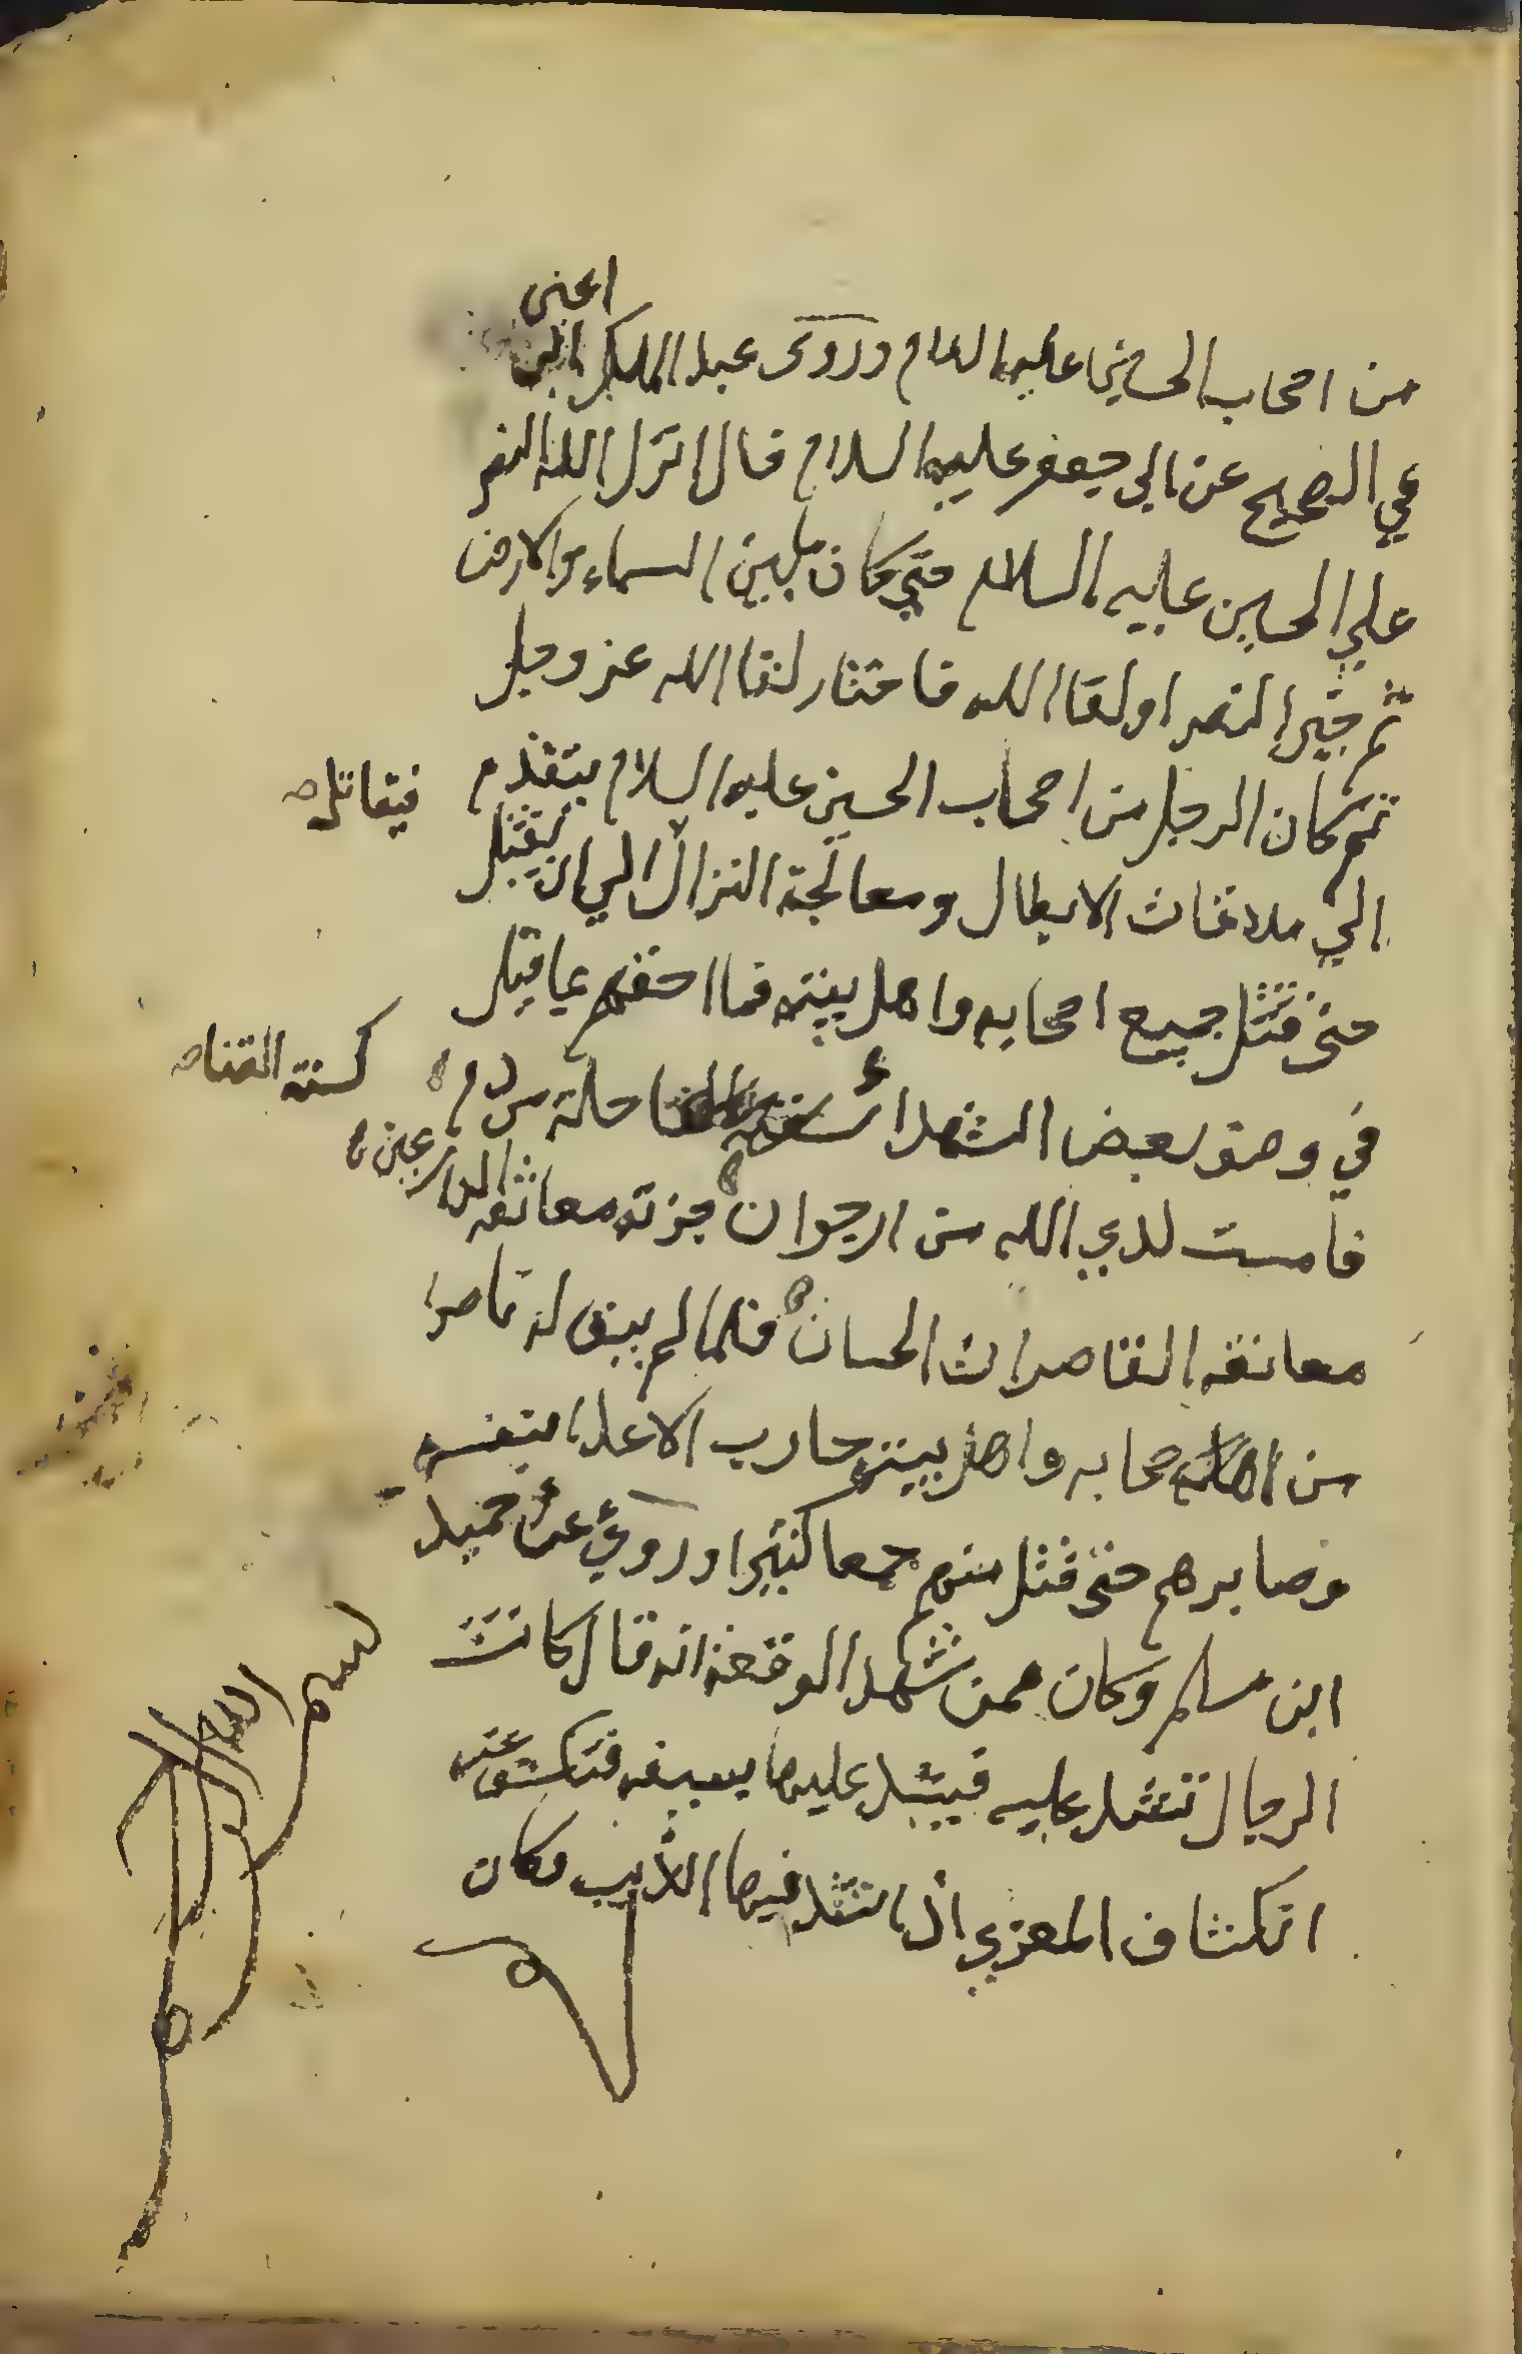 اعنى
من اصحاب الحسين عليه السلام وروى عبد الملك ابن
في الصحيح عن ابي جعفر عليه السلام قال انزل الله النصر
علي الحسين عليه السلام حتي كان مابين السماء والارض
ثم خير النصر او لقا الله فاختار لقا الله عز وجل
ثم كان الرجل من اصحاب الحسين عليه السلام يتقدم فيقاتل
الي ملاقات الابطال ومعالجة النزال الي ان يقتل
حتى قتل جميع اصحابه واهل بيته فما احقهم بما قيل
في وصف بعض الشهدا كسته القنا حلة من دم
فامست لدي الله من ارجوان جزته معانقة الدارعين
معانقة القاصرات الحسان فلما لم يبق له ناصرا
من اصحابه واهل بيته حارب الاعداء بنفسه
وصابرهم حتى قتل منهم جمعا كثيرا وروي عن حميد
ابن مسلم وكان ممن شهد الوقعة انه قال كانت
الرجال تشد عليه فيشد عليها بسيفه فتنكشف عنه
انكشاف المعزي اذا شد فيها الذيب وكان
بسم الله